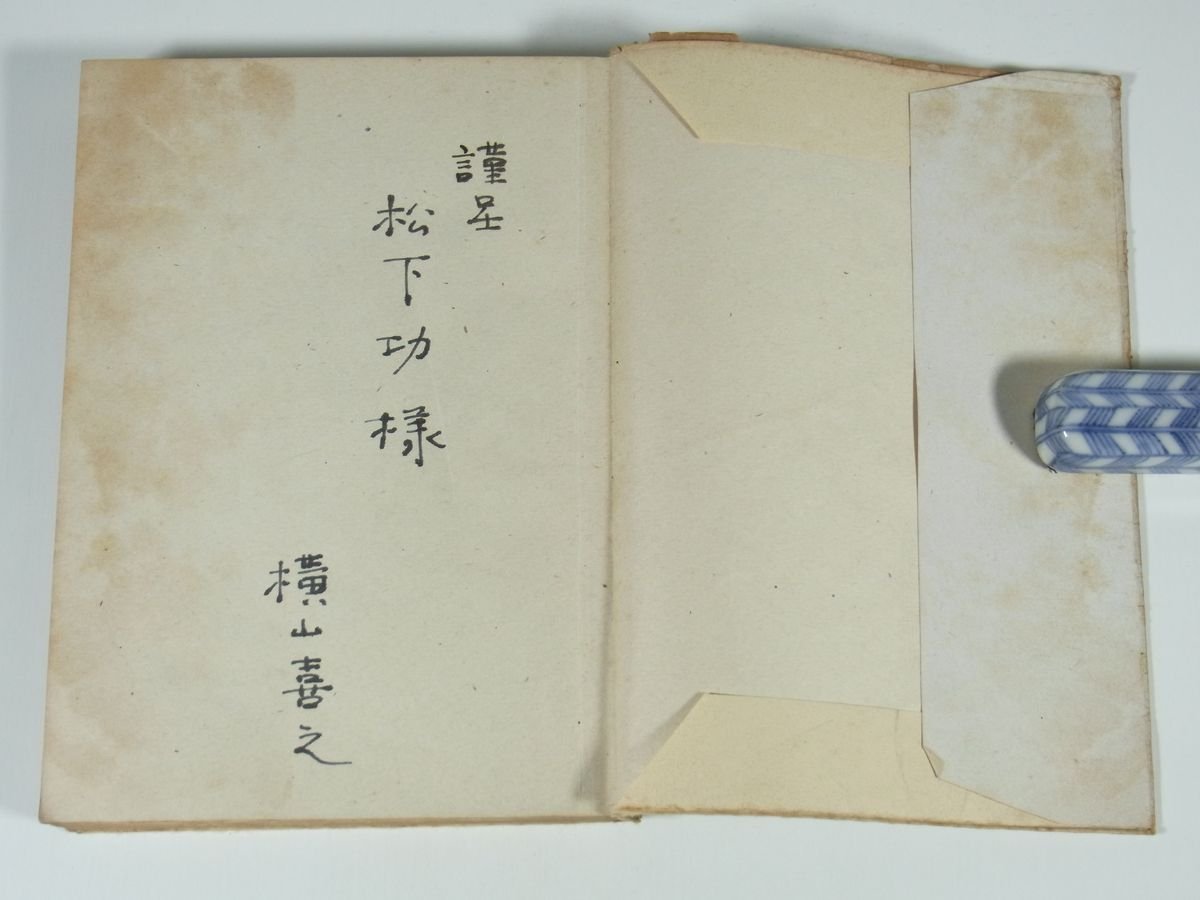 謹呈
松下功様
横山喜之